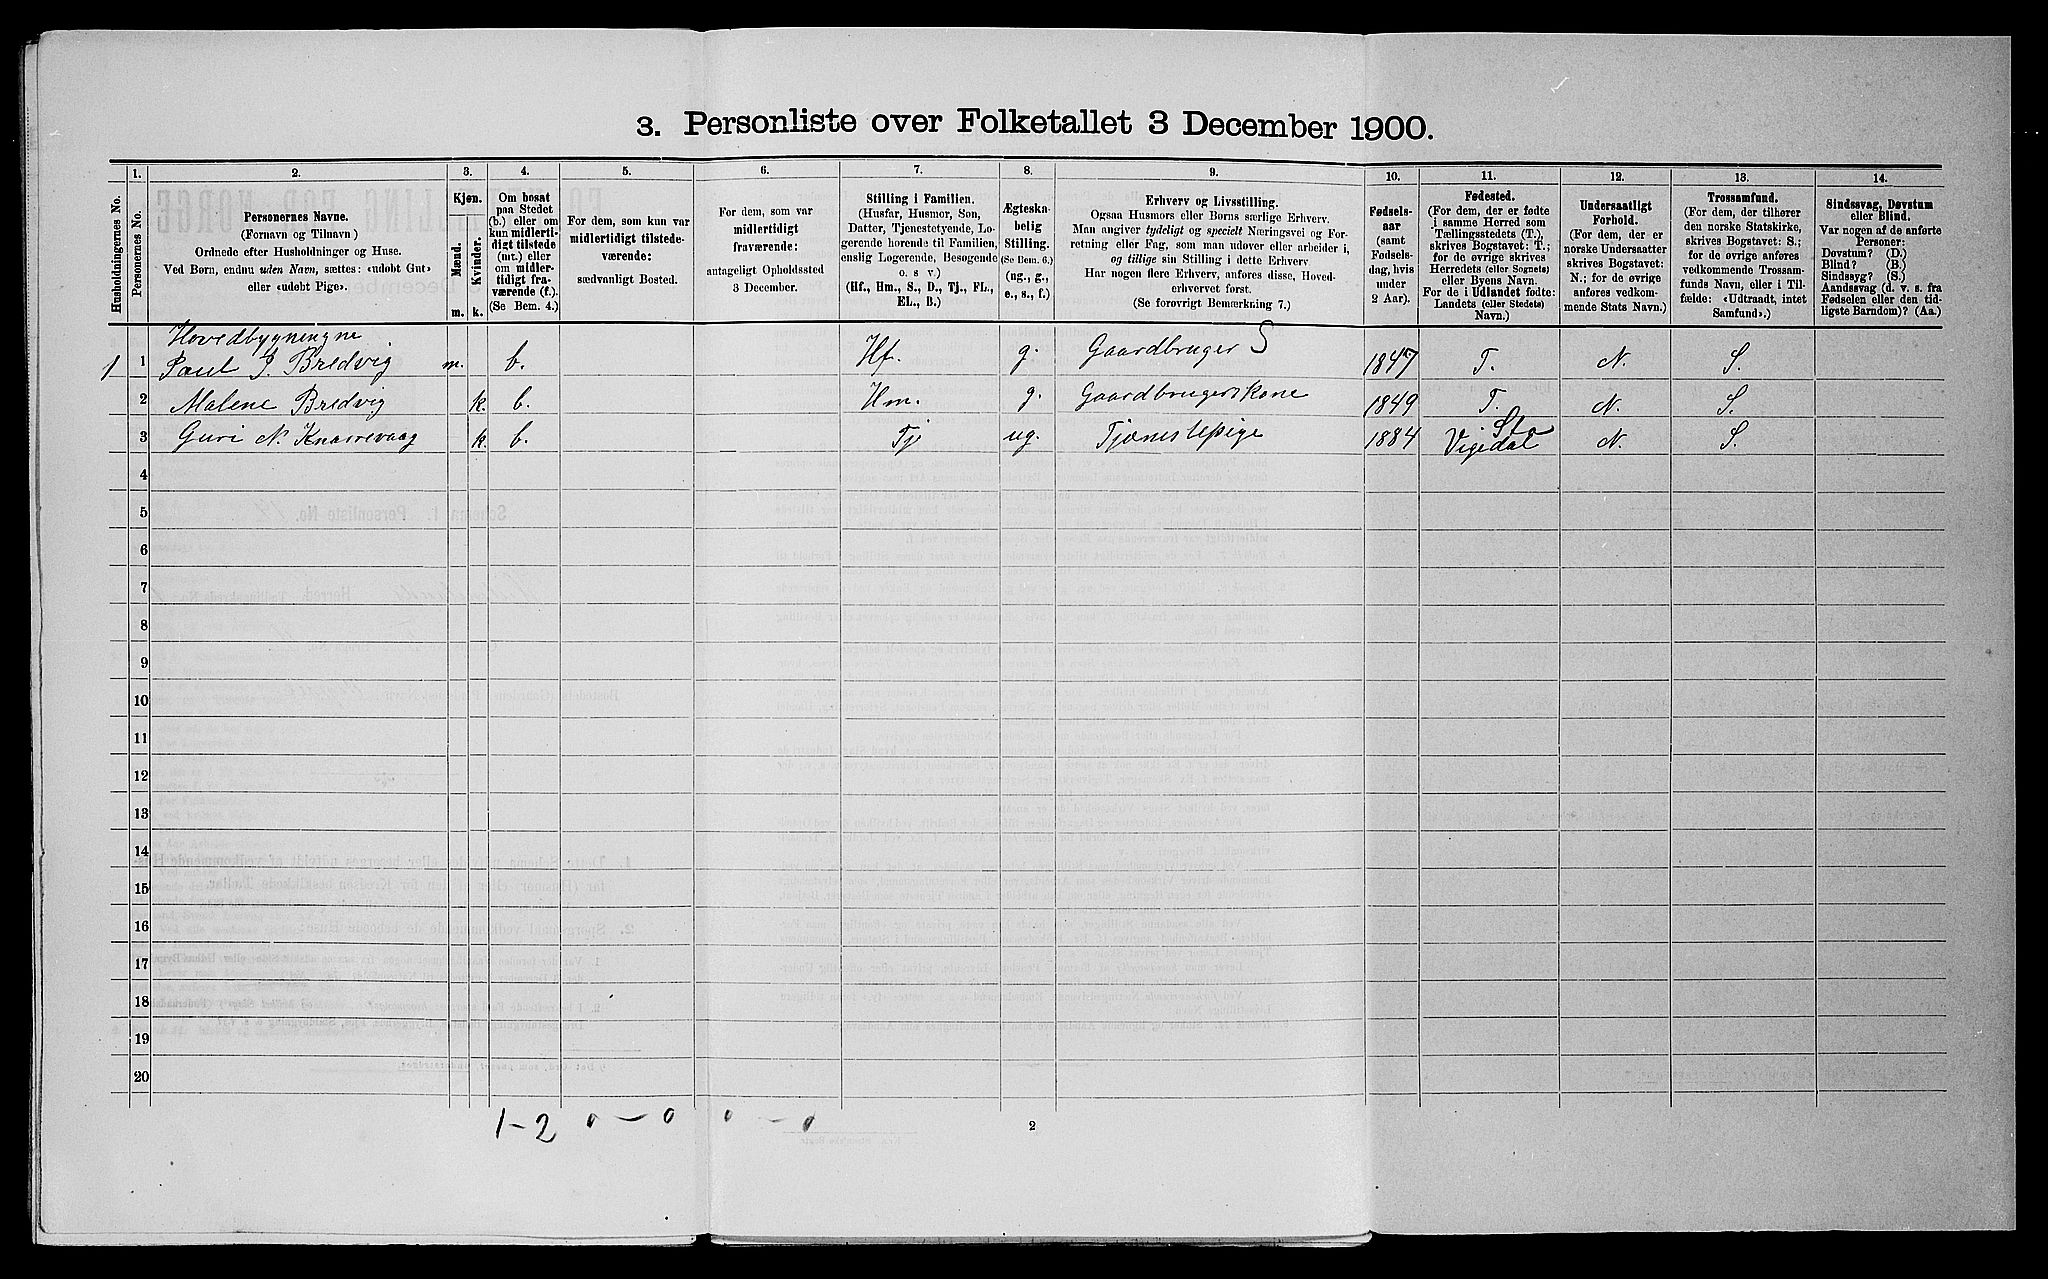 3. Personliste over Folketallet 3 December 1900.
Husholdningernes No.
1.
Personernes No.
2.
Personernes Navne.
(Fornavn og Tilnavn)
Ordnede efter Husholdninger og Huse.
Ved Børn, endnu uden Navn, sættes: «udøbt Gut»
eller «udøbt Pige».
3.
Kjøn.
Mænd.
Kvinder.
m. k.
4.
Om bosat
paa Stedet
(b.) eller om
kun midlerti-
digt tilstede
(mt.) eller
om midler-
tidigt fra-
værende (f.).
(Se Bem. 4.)
5.
For dem, som kun var
midlertidigt tilstede-
værende:
sædvanligt Bosted.
6.
For dem, som var
midlertidigt
fraværende:
antageligt Opholdssted
3 December.
7.
Stilling i Familien.
(Husfar, Husmor, Søn,
Datter, Tjenestetyende, Lo-
gerende hørende til Familien,
enslig Logerende, Besøgende
o. s v.)
(Hf., Hm., S., D., Tj., FL.,
EL., B.)
8.
Ægteska-
belig
Stilling.
(Se Bem. 6.)
(ug., g.,
e., s., f.)
9.
Erhverv og Livsstilling.
Ogsaa Husmors eller Børns særlige Erhverv.
Man angiver tydeligt og specielt Næringsvei og For-
retning eller Fag, som man udøver eller arbeider i,
og tillige sin Stilling i dette Erhverv.
Har nogen flere Erhverv, anføres disse, Hoved-
erhvervet først.
(Se forøvrigt Bemærkning 7.)
10.
Fødsels-
aar
(samt
Fødsels-
dag, hvis
under
2 Aar).
11.
Fødested.
(For dem, der er fødte
i samme Herred som
Tællingsstedets (T.),
skrives Bogstavet: T.;
for de øvrige skrives
Herredets (eller Sognets)
eller Byens Navn.
For de i Udlandet fødte:
Landets (eller Stedets)
Navn.)
12.
Undersaatligt
Forhold.
(For dem, der er
norske Undersaatter
skrives Bogstavet:
N.; for de øvrige
anføres vedkom-
mende Stats Navn.)
13.
Trossamfund.
(For dem, der tilhører
den norske Statskirke,
skrives Bogstavet: S.;
for de øvrige anføres
vedkommende Trossam-
funds Navn, eller i Til-
fælde: «Udtraadt, intet
Samfund».)
14.
Sindssvag, Døvstum
eller Blind.
Var nogen af de anførte
Personer:
Døvstum? (D.)
Blind? (B.)
Sindssyg? (S.)
Aandssvag (d. v. s. fra
Fødselen eller den tid-
ligste Barndom)? (Aa.)
Hovedbygningne
1 1 Paul J. Bredvig m. b. Hf. g. Gaardbruger S 1847 T. N. S.
2 Malene Bredvig k. b. Hm. g. Gaardbrugerskone 1849 T. N. S.
3 Guri N. Knarrevaag k. b. Tj ug. Tjenestepige 1884 Vigedal Sto N. S.
4
5
6
7
8
9
10
11
12
13
14
15
16
17
18
19
20
1-2 0-0 0-0
2